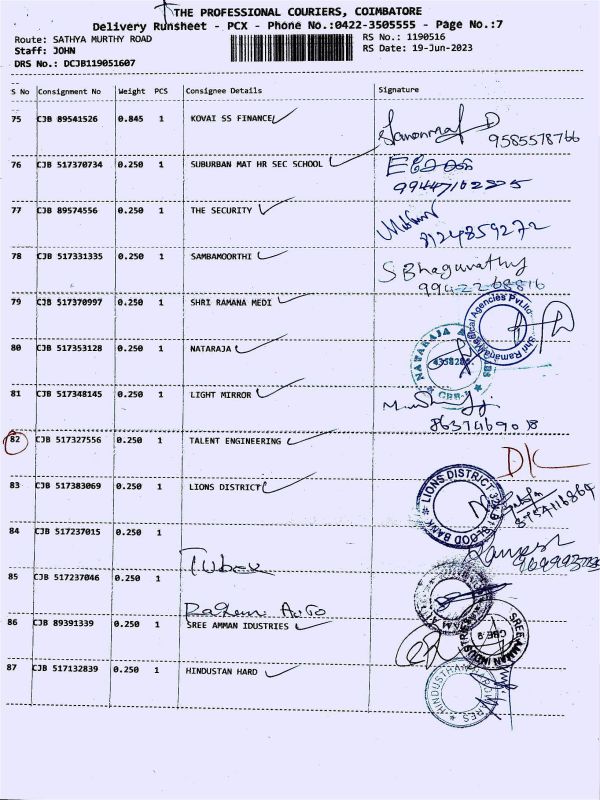 THE PROFESSIONAL COURIERS, COIMBATORE
Delivery Runsheet - PCX - Phone No.:0422-3505555 - Page No.:7
Route: SATHYA MURTHY ROAD RS No.: 1190516
Staff: JOHN RS Date: 19-Jun-2023
DRS No.: DCJB119051607
S No Consignment No Weight PCS Consignee Details Signature
75 CJB 89541526 0.845 1 KOVAI SS FINANCE
9585578766
76 CJB 517370734 0.250 1 SUBURBAN MAT HR SEC SCHOOL
77 CJB 89574556 0.250 1 THE SECURITY
8124859272
78 CJB 517331335 0.250 1 SAMBAMOORTHI
S Bhaguvathy
79 CJB 517370997 0.250 1 SHRI RAMANA MEDI
80 CJB 517353128 0.250 1 NATARAJA
NATARAJA
81 CJB 517348145 0.250 1 LIGHT MIRROR
8637469018
82 CJB 517327556 0.250 1 TALENT ENGINEERING
D/L
83 CJB 517383069 0.250 1 LIONS DISTRICT
LIONS DISTRICT BLOOD BANK
84 CJB 517237015 0.250 1
85 CJB 517237046 0.250 1
86 CJB 89391339 0.250 1 SREE AMMAN IDUSTRIES
SREE AMMAN INDUSTRIES
87 CJB 517132839 0.250 1 HINDUSTAN HARD